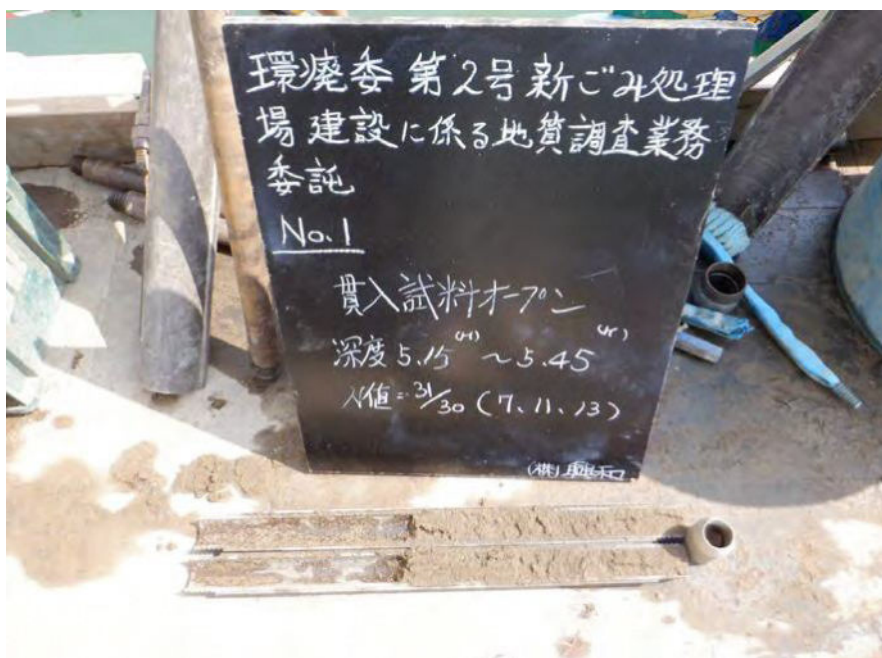 環廃委 第2号 新ごみ処理
場建設に係る地質調査業務
委託
No.1
貫入試料オープン
深度 5.15(m) ~ 5.45(m)
N値=31/30 (7、11、13)
(株)興和